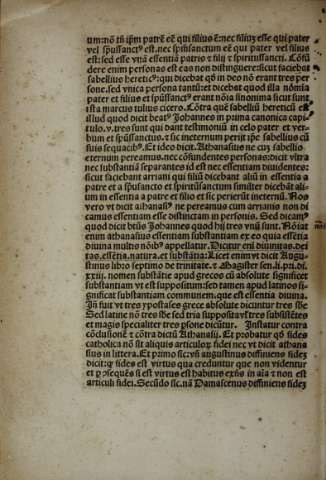 um: nō tñ ip̄m patrē eē qui filius ē: nec filiuȝ esse qui pater
vel spūssanctꝰ est. nec sp̄m sanctum eē qui pater vel filius
est: sed esse vnā essentiā patris ⁊ filij ⁊ spiritussancti. Cōfū
dere enim personas est eas non distinguere: sicut faciebat
sabellius hereticꝰ: qui dicebat qd̓ in deo nō erant tres per
sone. sed vnica persona tantū: et dicebat quod illa nōmīa
pater et filius et spūssanctꝰ erant nōīa sinonima sicut sunt
ista marcus tulius cicero. Cōtra quē sabelliū hereticū est
illud quod dicit beatꝰ Johannes in prima canonica capi
tulo. v. tres sunt qui dant testimoniū in celo pater et ver
bum et spūssanctus. sic meternum perijt ip̄e sabellius cū
suis sequacibꝰ. Et ideo dicit. Athanasius ne cuȝ sabellio
eternum pereamus. nec cōfundentes personas: dicit vltra
nec substantiā separantes id est nec essentiam diuidentes:
sicut faciebant arriani qui filiū dicebant aliū in essentia a
patre et a spūsancto et spiritūsanctum similiter dicebāt ali-
um in essentia a patre et filio et sic perierūt ineternum. Nos
vero vt dicit athanasꝰ ne pereamus cum arrianis non di
camus essentiam esse distinctam in personis. Sed dicamꝰ
quod dicit btūs Johannes quod hij tres vnū sunt. Nōīat
enim athanasius essentiam substantiam ex eo quia essētia
diuina multis nōībꝰ appellatur. Dicitur enī diuinitas. dei
tas. essētia. natura. et substātia: Licet enim vt dicit Augu-
stinus libro septimo de trinitate. ⁊ Magister sen. li. pri. di.
xxiij. nomen substātie apud grecos cū absolute significet
substantiam vt est suppositum: sed tamen apud latinos si-
gnificat substantiam communem. que est essentia diuina.
Jn fiut vt tres yPostases grece absolute dicuntur tres sbe
Sed latine nō tres sbe sed tria supposita vel tres subsistētes
et magis specialiter tres psone dicūtur. Jnstatur contra
cōclusionē ⁊ cōtra dictū Athanasij. Et probatur qd̓ fides
catholica nō sit aliquis articuloꝝ fidei nec vt dicit athana
sius in littera. Et primo sic: vt augustinus diffiniens fideȝ
dicit: qꝫ fides est virtus qua creduntur que non videntur
et ꝑ cōsequēs si est virtus est habitus exn̄s in aīa ⁊ non est
articuli fidei. Secūdo sic. nā Damascenus diffiniens fideȝ